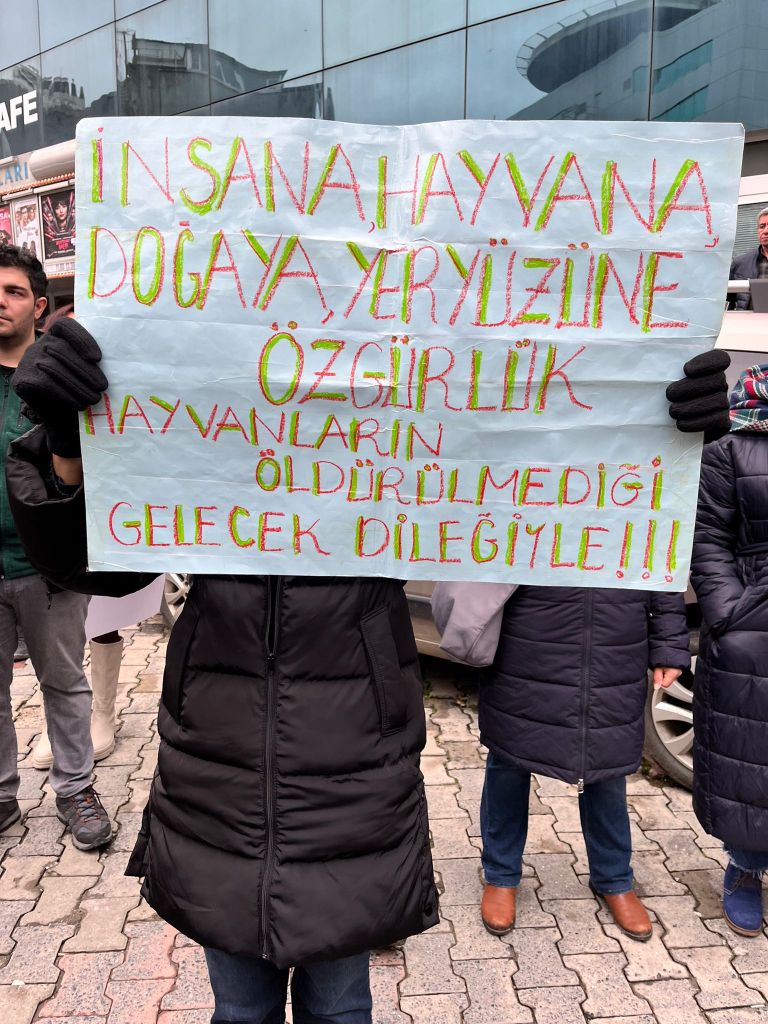 AFE
LARI
İNSANA, HAYVANA,
DOĞAYA, YERYÜZÜNE
ÖZGÜRLÜK
HAYVANLARIN
ÖLDÜRÜLMEDİĞİ
GELECEK DİLEĞİYLE!!!